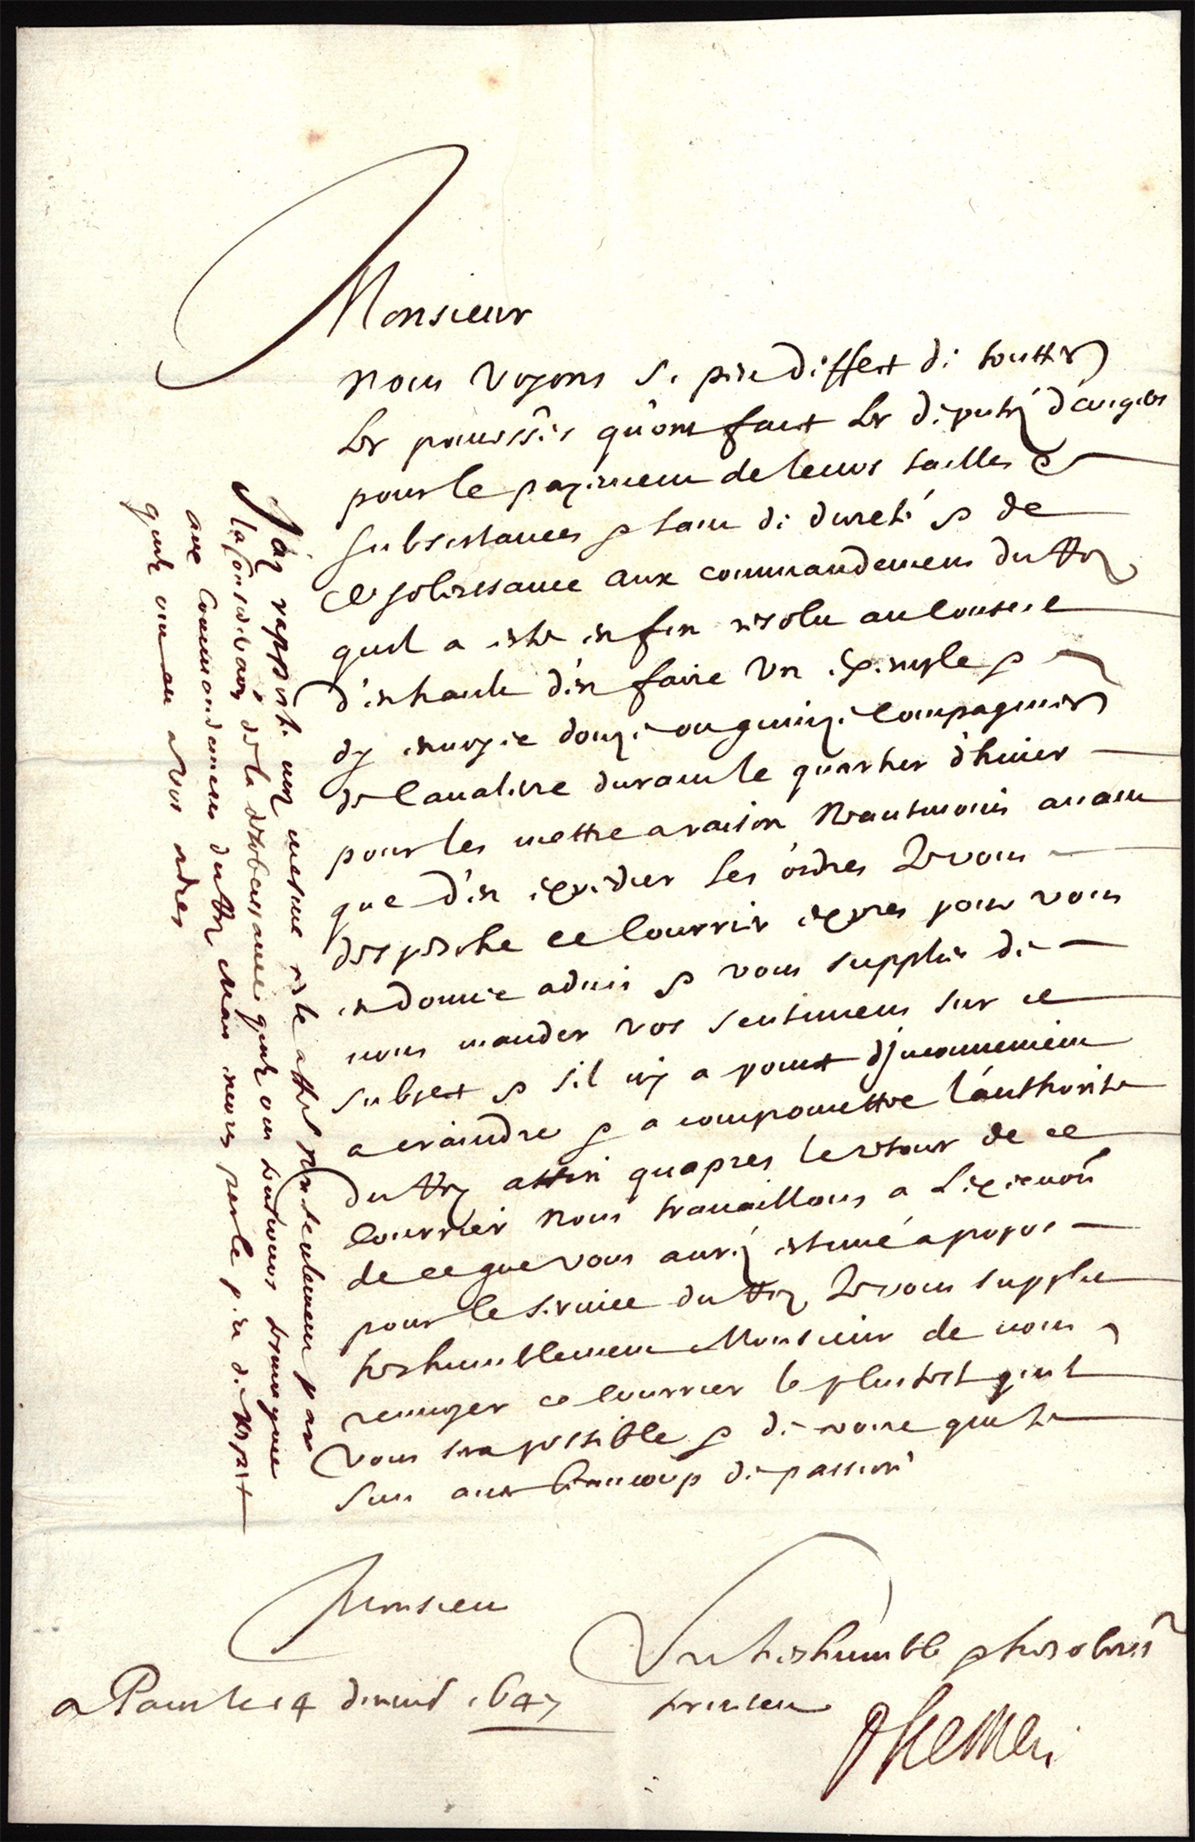 Monsieur
nous voyons si peu d'effect de touttes
les promesses qu'ont faict les deputés d'angers
pour le payement de leurs tailles et
subsistances et tant de dureté et de
desobeissance aux commandemens du Roy
quil a esté enfin resolu au conseil
d'en haut d'en faire un exemple et
dy envoyer douze ou quinze compagnies
de cavalerie durant le quartier d'hiver
pour les mettre a raison Neantmoins avant
que d'en expedier les ordres Je vous
despesche ce courrier expres pour vous
en donner advis et vous supplier de
nous mander vos sentimens sur ce
subject et s'il ny a point d'inconvenient
a craindre et a compromettre l'authorité
du Roy affin quapres le retour de ce
courrier nous travaillions a l'execution
de ce que vous aurés estimé a propos
pour le service du Roy Je vous supplie
tres humblement Monsieur de nous
renvoyer ce courrier le plustost quil
vous sera possible et de croire que je
suis avec beaucoup de passion
Monsieur
Vre tres humble et tres obeiss
serviteur
a Paris le 14 1647
d'Hemeri
J'ay non seulement par
la consideration de la desobeissance quils ont tousjours temoignée
aux commandemens du Roy Mais encores par le peu de respect
quils ont eu a vos ordres